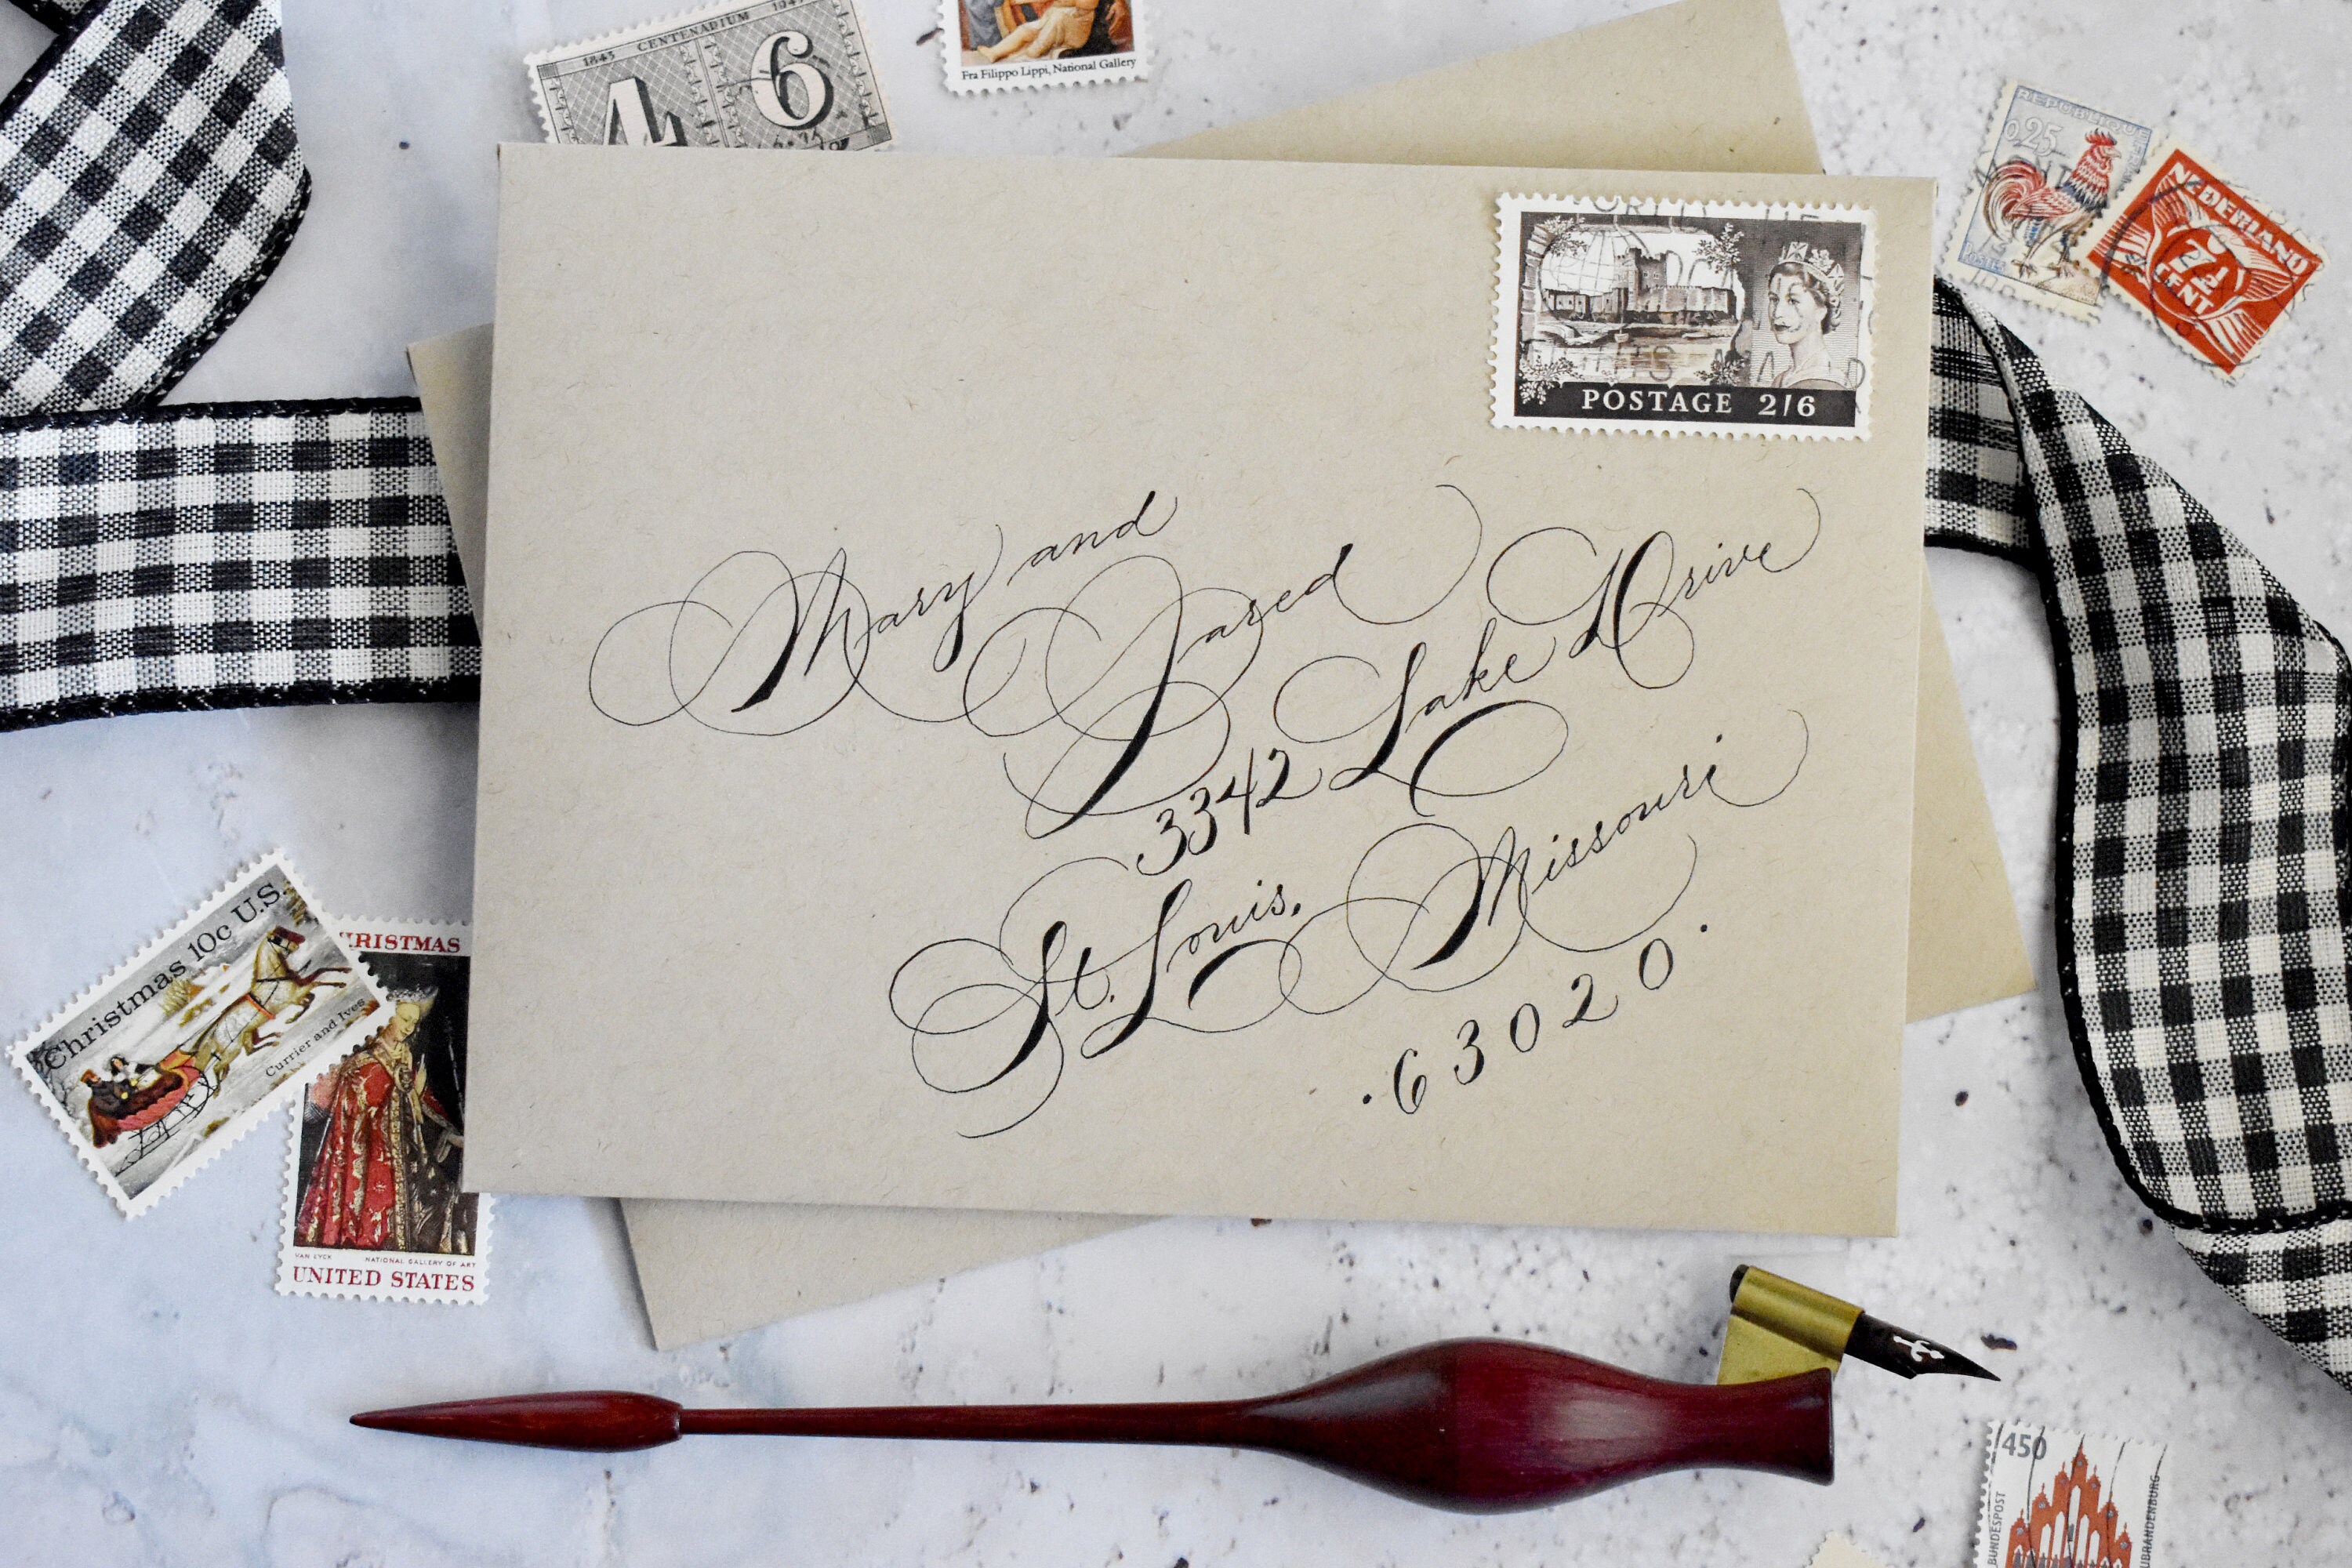 1843 CENTENADIUM 1943
4 6
Fra Filippo Lippi, National Gallery
REPUBLIQUE
0,25
POSTES
NEDERLAND
7½
CENT
POSTAGE 2/6
Mary and
Jared
3342 Lake Drive
St. Louis, Missouri
·63020·
Christmas 10c U.S.
Currier and Ives
CHRISTMAS
VAN EYCK NATIONAL GALLERY OF ART
UNITED STATES
450
BUNDESPOST